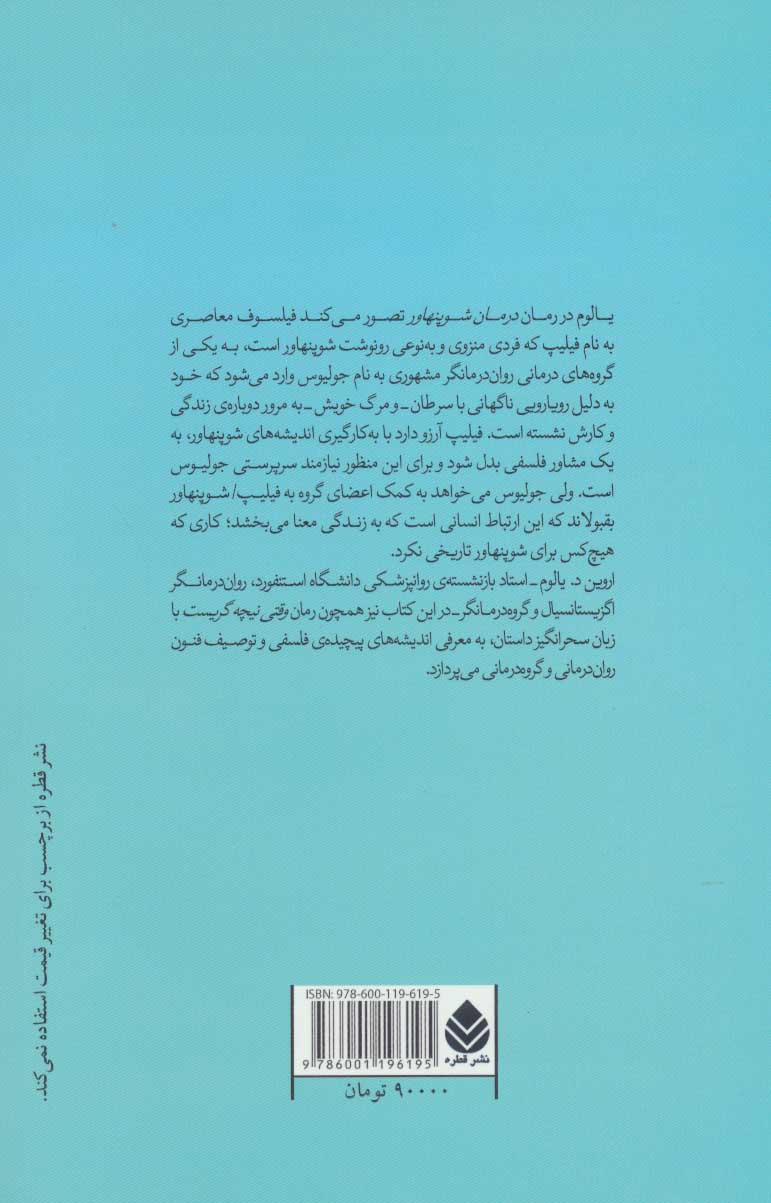 یالوم در رمان درمان شوپنهاور تصور می‌کند فیلسوف معاصری
به نام فیلیپ که فردی منزوی و به‌نوعی رونوشت شوپنهاور است، به یکی از
گروه‌های درمانی روان‌درمانگر مشهوری به نام جولیوس وارد می‌شود که خود
به دلیل رویارویی ناگهانی با سرطان ـ و مرگ خویش ـ به مرور دوباره‌ی زندگی
و کارش نشسته است. فیلیپ آرزو دارد با به‌کارگیری اندیشه‌های شوپنهاور، به
یک مشاور فلسفی بدل شود و برای این منظور نیازمند سرپرستی جولیوس
است. ولی جولیوس می‌خواهد به کمک اعضای گروه به فیلیپ/ شوپنهاور
بقبولاند که این ارتباط انسانی است که به زندگی معنا می‌بخشد؛ کاری که
هیچ‌کس برای شوپنهاور تاریخی نکرد.
اروین د. یالوم ـ استاد بازنشسته‌ی روانپزشکی دانشگاه استنفورد، روان‌درمانگر
اگزیستانسیال و گروه‌درمانگر ـ در این کتاب نیز همچون رمان وقتی نیچه گریست با
زبان سحرانگیز داستان، به معرفی اندیشه‌های پیچیده‌ی فلسفی و توصیف فنون
روان‌درمانی و گروه‌درمانی می‌پردازد.
نشر قطره از برچسب برای تغییر قیمت استفاده نمی‌کند.
ISBN: 978-600-119-619-5
9 786001 196195
نشر قطره
۹۰۰۰۰ تومان